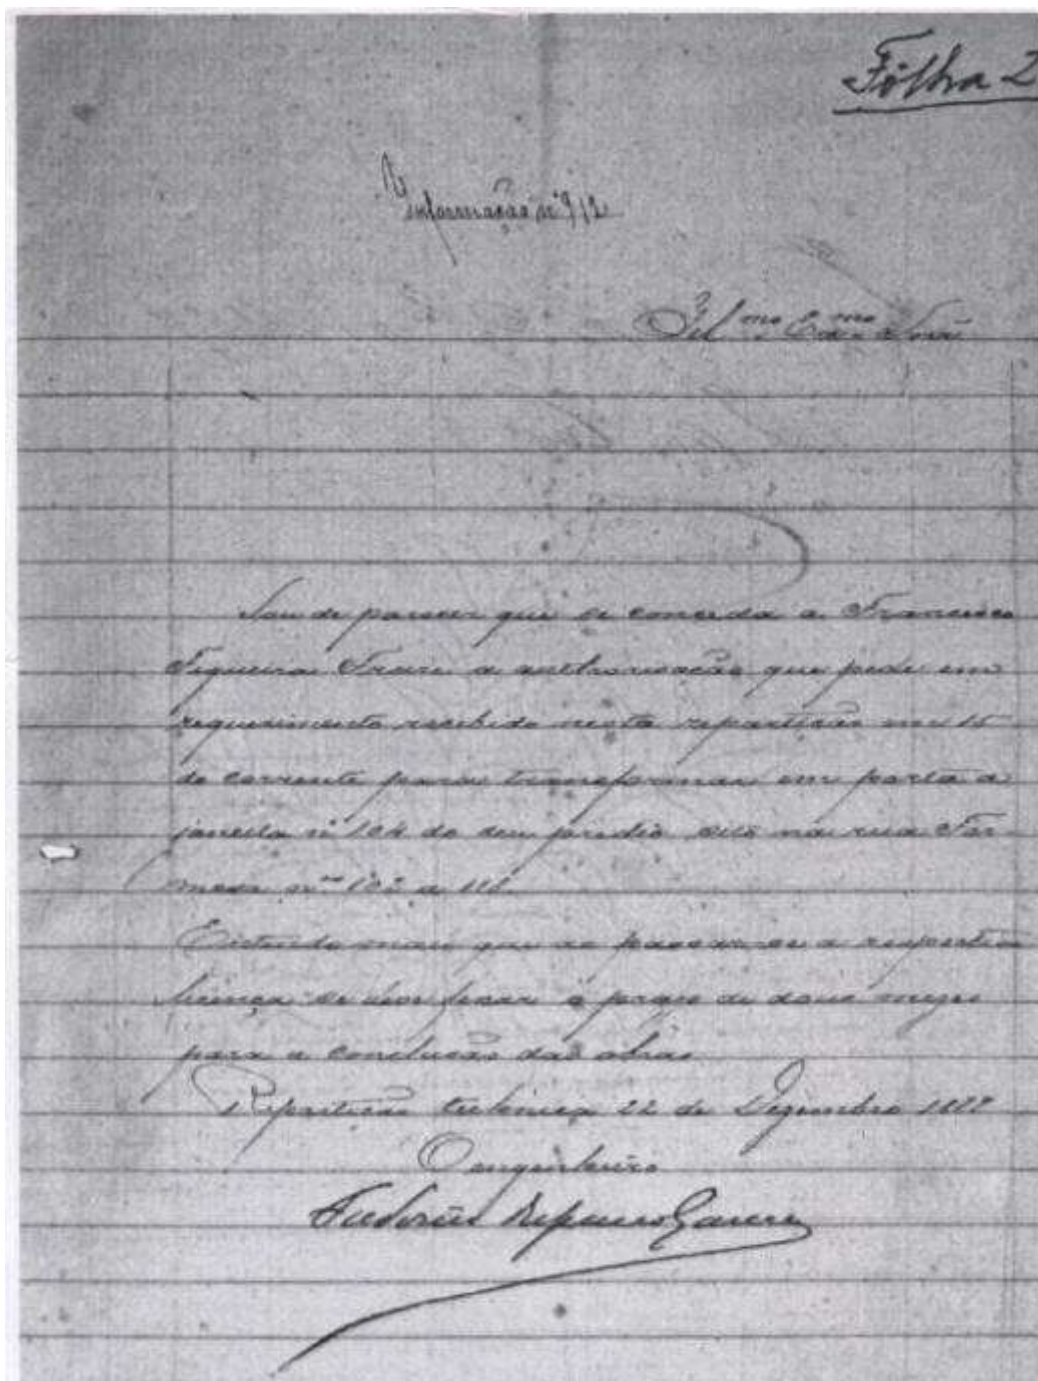 Fôlha 2
Informação nº 912
Ill.mo Ex.mo Snr
Sou de parecer que se conceda a Francisco
Siqueira Freire a authorisação que pede em
requerimento recebido nesta repartição em 15
do corrente para transformar em porta a
janella nº 104 do seu predio sito na rua For
mosa nos 102 a
Entendo mais que ao passar-se a respectiva
licença se deve fixar o prazo de dous mezes
para a conclusão das obras
Repartição technica 22 de Dezembro
O engenheiro
Frederico Ressano Garcia